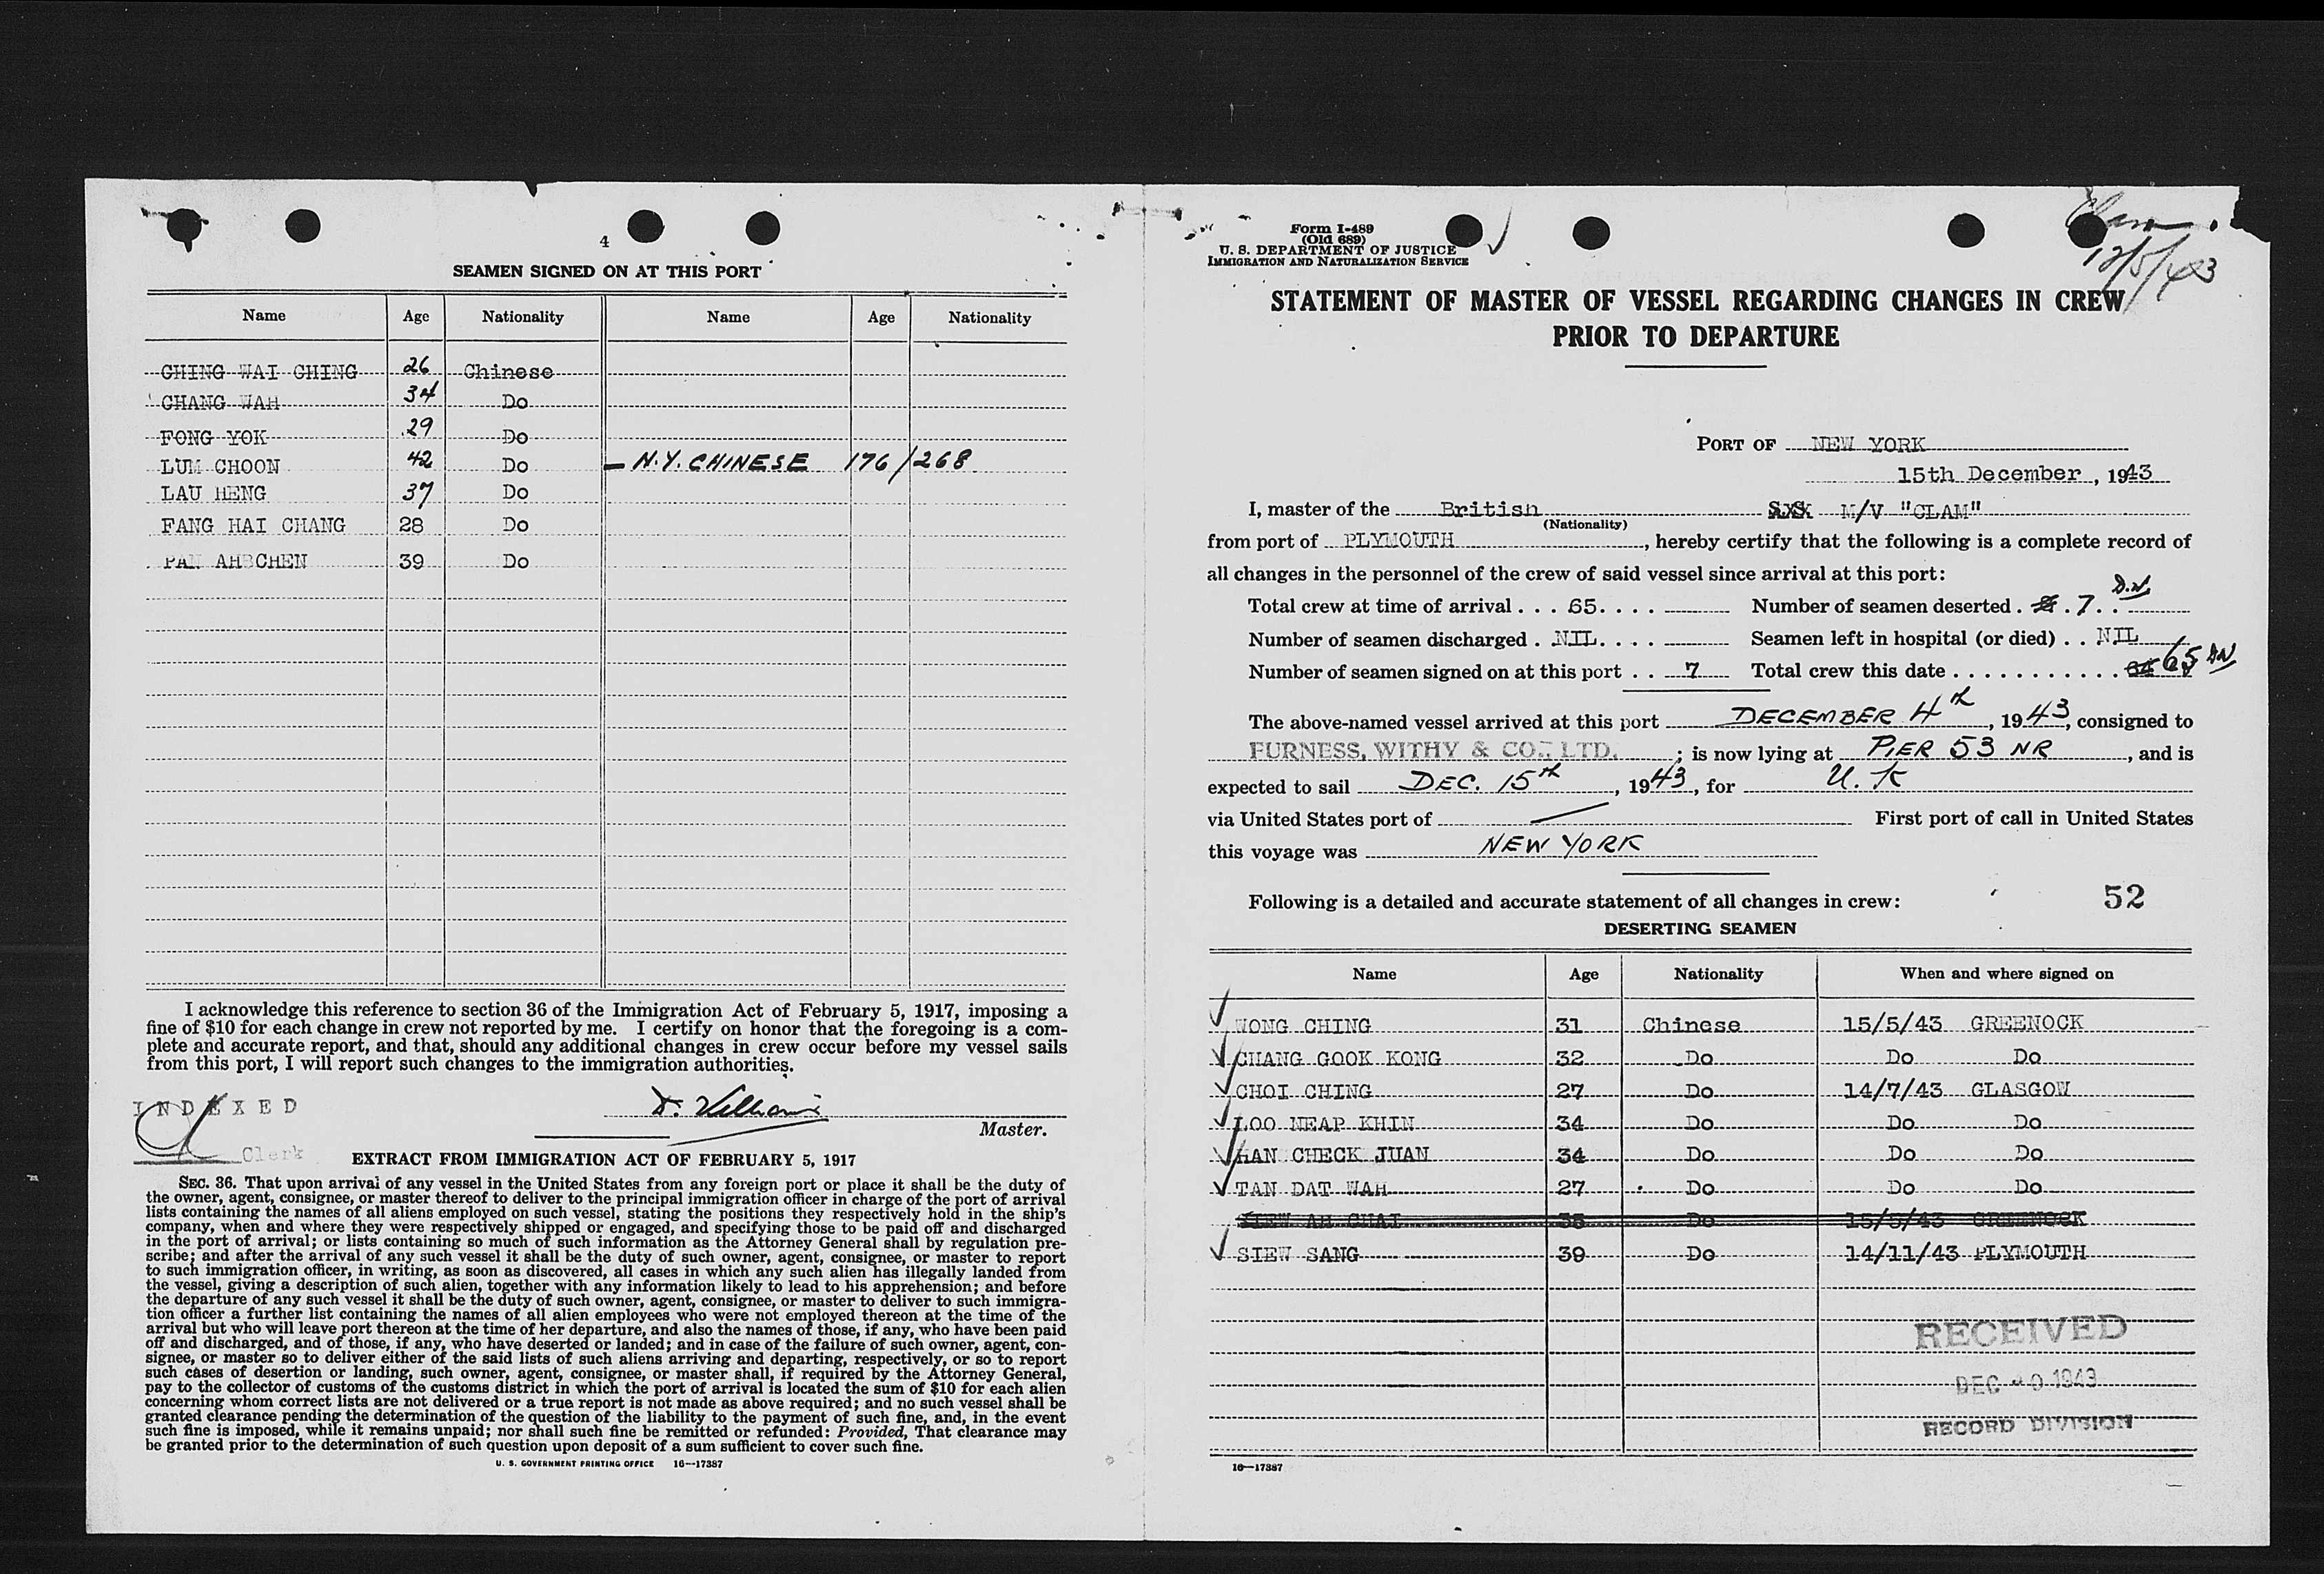 4
SEAMEN SIGNED ON AT THIS PORT
Name Age Nationality Name Age Nationality
CHING WAI CHING 26 Chinese
CHANG WAH 34 Do
FONG YOK 29 Do
LUM CHOON 42 Do — N.Y. CHINESE 176/268
LAU HENG 37 Do
FANG HAI CHANG 28 Do
PAN AH CHEN 39 Do
I acknowledge this reference to section 36 of the Immigration Act of February 5, 1917, imposing a
fine of $10 for each change in crew not reported by me. I certify on honor that the foregoing is a com-
plete and accurate report, and that, should any additional changes in crew occur before my vessel sails
from this port, I will report such changes to the immigration authorities.
INDEXED
Clerk
Master.
EXTRACT FROM IMMIGRATION ACT OF FEBRUARY 5, 1917
SEC. 36. That upon arrival of any vessel in the United States from any foreign port or place it shall be the duty of
the owner, agent, consignee, or master thereof to deliver to the principal immigration officer in charge of the port of arrival
lists containing the names of all aliens employed on such vessel, stating the positions they respectively hold in the ship's
company, when and where they were respectively shipped or engaged, and specifying those to be paid off and discharged
in the port of arrival; or lists containing so much of such information as the Attorney General shall by regulation pre-
scribe; and after the arrival of any such vessel it shall be the duty of such owner, agent, consignee, or master to report
to such immigration officer, in writing, as soon as discovered, all cases in which any such alien has illegally landed from
the vessel, giving a description of such alien, together with any information likely to lead to his apprehension; and before
the departure of any such vessel it shall be the duty of such owner, agent, consignee, or master to deliver to such immigra-
tion officer a further list containing the names of all alien employees who were not employed thereon at the time of the
arrival but who will leave port thereon at the time of her departure, and also the names of those, if any, who have been paid
off and discharged, and of those, if any, who have deserted or landed; and in case of the failure of such owner, agent, con-
signee, or master so to deliver either of the said lists of such aliens arriving and departing, respectively, or so to report
such cases of desertion or landing, such owner, agent, consignee, or master shall, if required by the Attorney General,
pay to the collector of customs of the customs district in which the port of arrival is located the sum of $10 for each alien
concerning whom correct lists are not delivered or a true report is not made as above required; and no such vessel shall be
granted clearance pending the determination of the question of the liability to the payment of such fine, and, in the event
such fine is imposed, while it remains unpaid; nor shall such fine be remitted or refunded: Provided, That clearance may
be granted prior to the determination of such question upon deposit of a sum sufficient to cover such fine.
U. S. GOVERNMENT PRINTING OFFICE 16—17387
Form I-489
(Old 689)
U. S. DEPARTMENT OF JUSTICE
IMMIGRATION AND NATURALIZATION SERVICE
Clam
12/5/43
STATEMENT OF MASTER OF VESSEL REGARDING CHANGES IN CREW
PRIOR TO DEPARTURE
PORT OF NEW YORK
15th December, 1943
I, master of the British S.S. M/V "CLAM"
(Nationality)
from port of PLYMOUTH, hereby certify that the following is a complete record of
all changes in the personnel of the crew of said vessel since arrival at this port:
Total crew at time of arrival . . . 65 . . . . Number of seamen deserted . 8 . 7 . . D.W.
Number of seamen discharged . NIL . . . . Seamen left in hospital (or died) . . NIL
Number of seamen signed on at this port . . 7 Total crew this date . . . . . . . . . . . 64 65 DW
The above-named vessel arrived at this port DECEMBER 4th, 1943, consigned to
FURNESS, WITHY & CO., LTD. ; is now lying at PIER 53 NR, and is
expected to sail DEC. 15th, 1943, for U. K
via United States port of — First port of call in United States
this voyage was NEW YORK
Following is a detailed and accurate statement of all changes in crew: 52
DESERTING SEAMEN
Name Age Nationality When and where signed on
WONG CHING 31 Chinese 15/5/43 GREENOCK
CHANG GOOK KONG 32 Do Do Do
CHOI CHING 27 Do 14/7/43 GLASGOW
LOO NEAP KHIN 34 Do Do Do
HAN CHECK JUAN 34 Do Do Do
TAN DAT WAH 27 Do Do Do
SIEW AH CHAI 35 Do 15/5/43 GREENOCK
SIEW SANG 39 Do 14/11/43 PLYMOUTH
RECEIVED
DEC 20 1943
RECORD DIVISION
16—17387